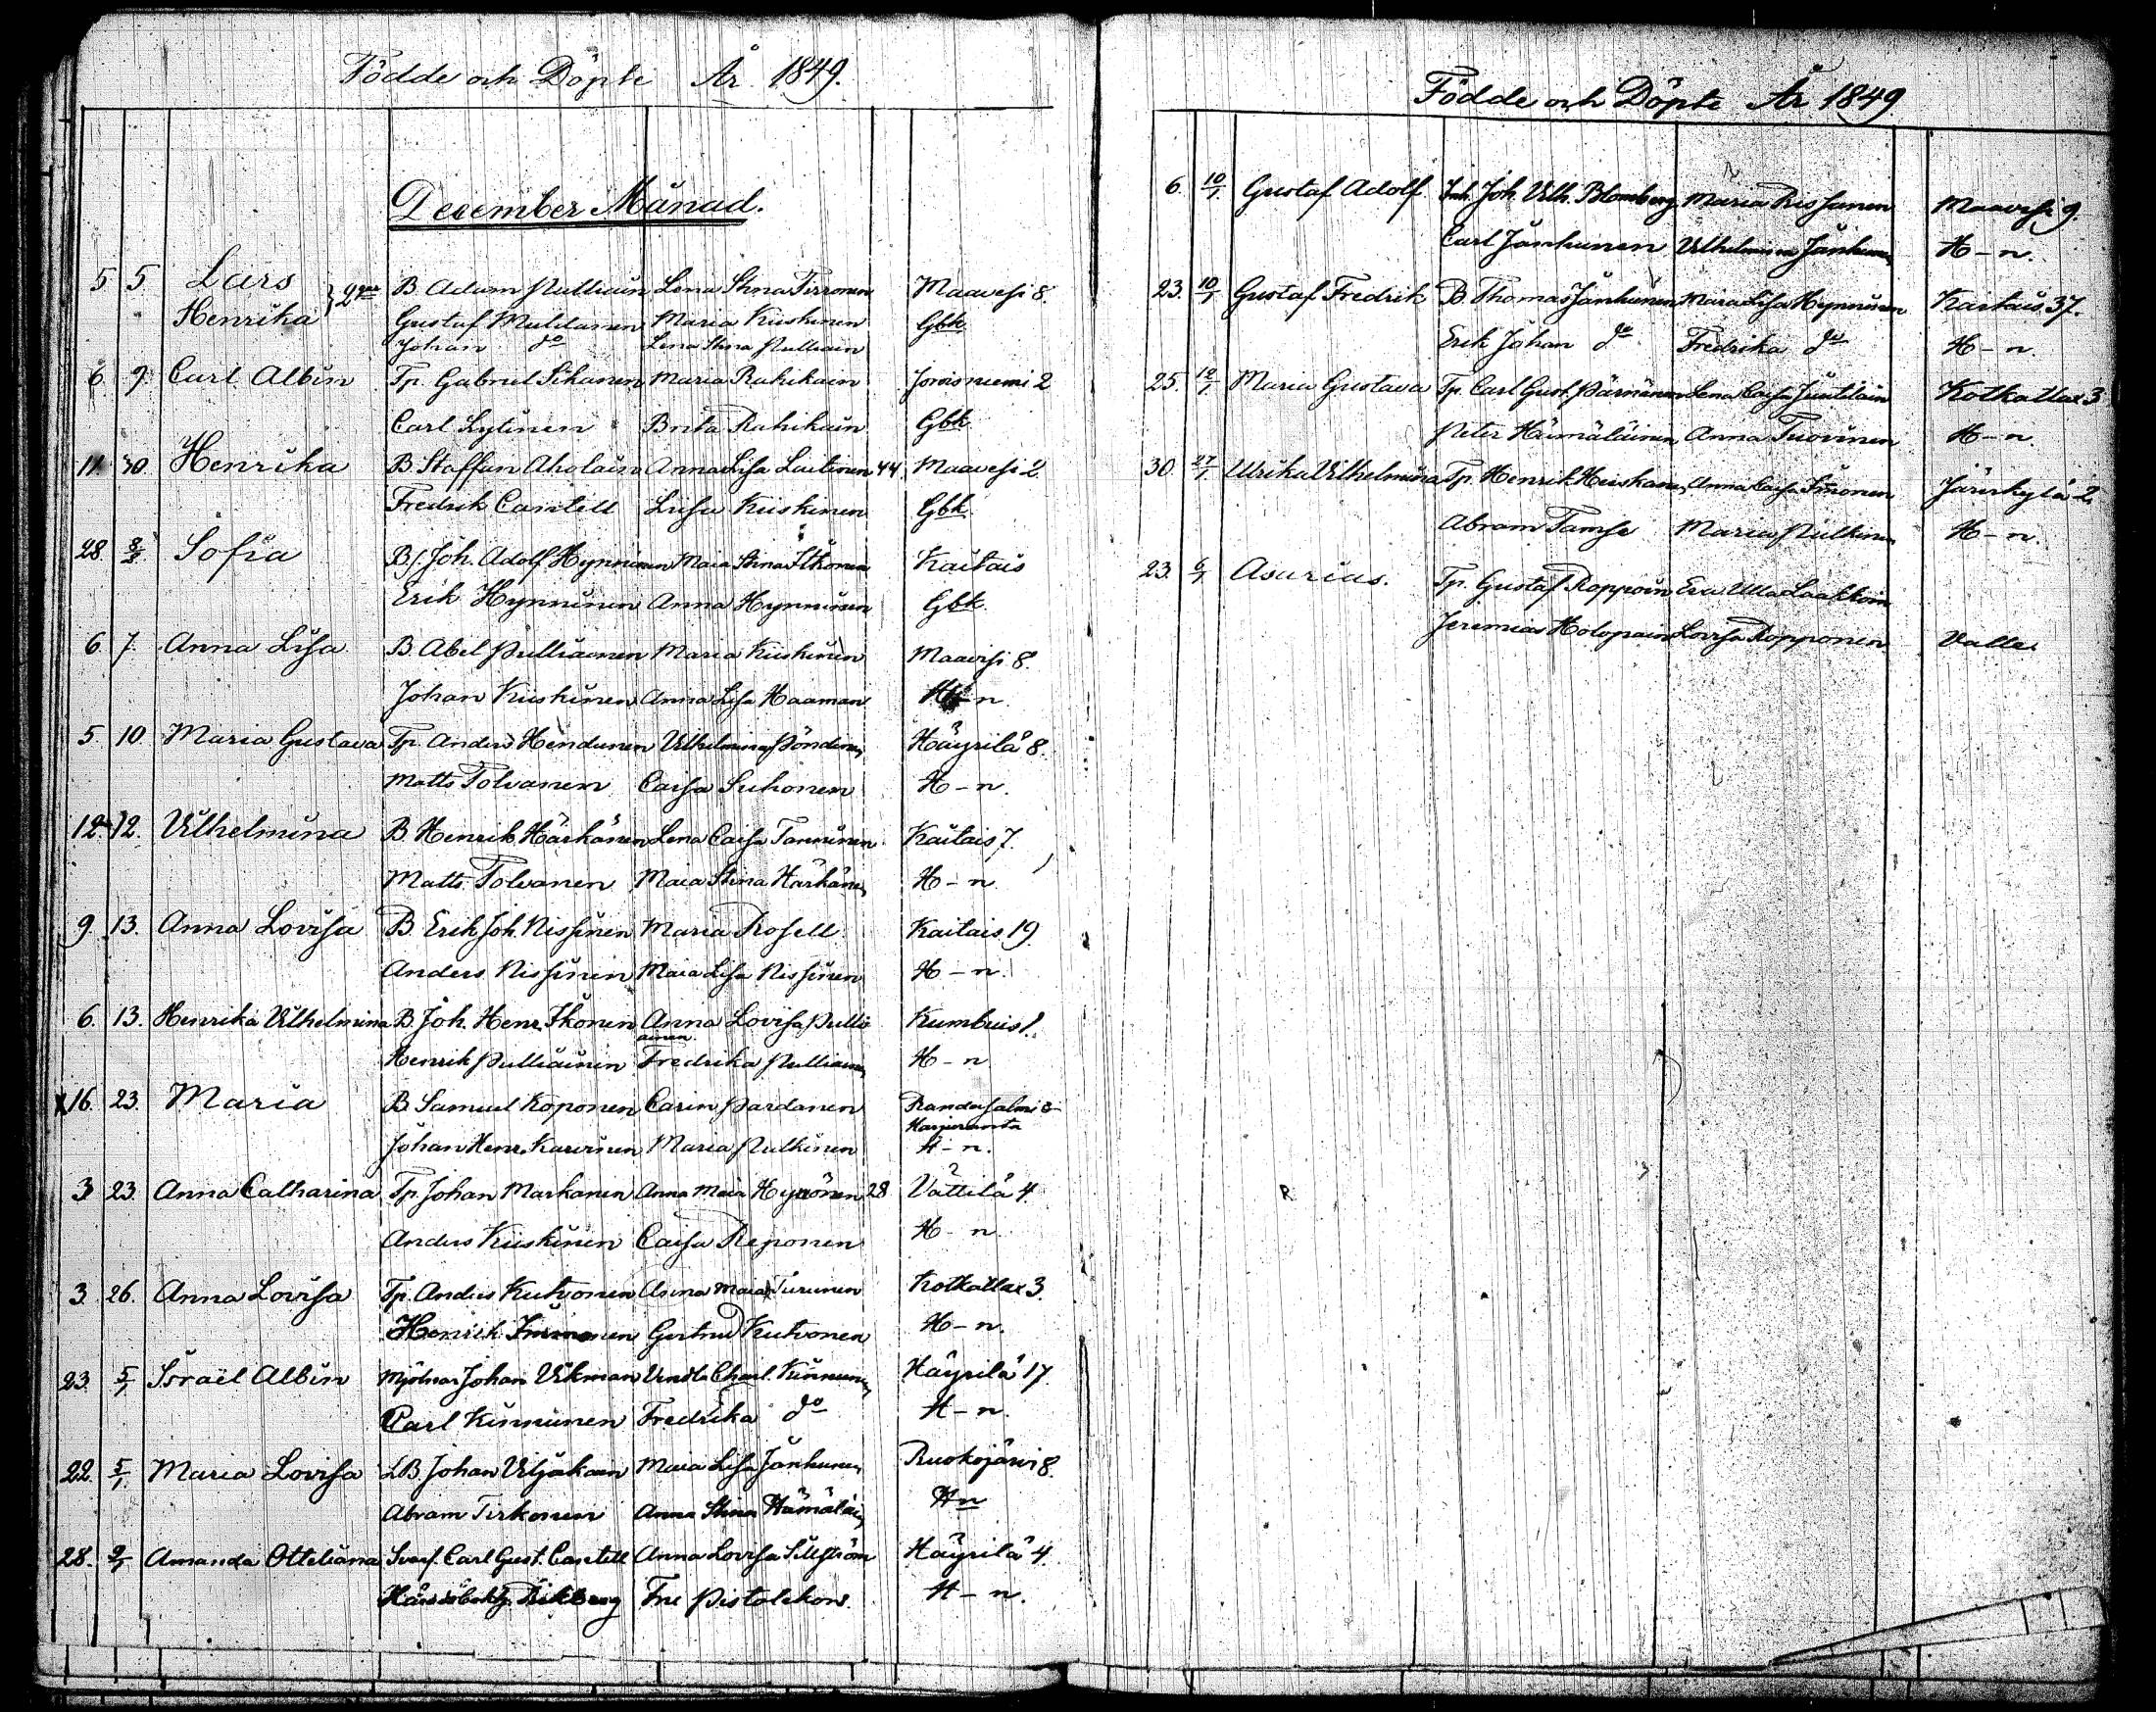 Födde och Döpte År 1849.
December Månad.
5 5 Lars B Adam Pulliain Lena Stina Tirronen Maavesi 8.
Henrika Gustaf Maria Kiiskinen Gbk
Johan do Lena Stina Pulliain
6. 9. Carl Albin Tp. Gabriel Sihvonen Maria Rahikain Joroisniemi 2
Carl Lytinen Brita Rahikain Gbk
11. 10. Henrika B. Staffan Aholain Anna Lisa Laitinen 44. Maavesi 2.
Fredrik Castell Lisa Kiiskinen Gbk.
28. Sofia Bs. Joh. Adolf Hynninen Maia Stina Itkonen Kaitais
Erik Hynninen Anna Hynninen Gbk.
6 7. Anna Lisa B Abel Pulliainen Maria Kiiskinen Maavesi 8.
Johan Kiiskinen Anna Lisa Haaman H-n.
5. 10. Maria Gustava Tp. Anders Hendunen Vilhelmina Pöndinen Häyrilä 8.
Matts Tolvanen Caisa Suhonen H-n.
12. 12. Vilhelmina B Henrik Härkönen Lena Caisa Tanninen Kaitais 7.
Matts Tolvanen Maia Stina Härkönen H-n.
9. 13. Anna Lovisa B. Erik Joh. Nissinen Maria Rosell Kaitais 19
Anders Nissinen Maia Lisa Nissinen H-n.
6. 13. Henrika Vilhelmina B. Joh. Henr. Ikonen Anna Lovisa Pulli
ainen. Kumbuis 1.
Henrik Pulliainen Fredrika Pulliainen H-n
x 16. 23. Maria B Samuel Koponen Carin Pardanen Randasalmi &
Harjuranta
Johan Henr. Karvinen Maria Pulkinen H-n.
3 23. Anna Catharina Tp. Johan Markanen Anna Maia Hynönen 28 Vättilä 4.
Anders Kiiskinen Caisa Reponen H-n
3. 26. Anna Lovisa Tp. Anders Kutvonen Anna Maia Turunen Kotkatlax 3.
Henrik Immonen Gertrud Kutvonen H-n.
23. 5/1 Israël Albin Mjölnar Johan Vikman Vendla Charl. Kinnunen Häyrilä 17.
Carl Kinnunen Fredrika do H-n.
22. 5/1 Maria Lovisa LB. Johan Viljakain Maia Lisa Jänhunen Ruokojärvi 8.
Abram Tirkonen Anna Stina Hämäläin H-n
28. 9/1 Amanda Otteliana Carl Gust. Castell Anna Lovisa Sillström Häyrilä 4.
Rikberg Fru Pistolekors H-n.
Födde och Döpte År 1849.
6. 10/1. Gustaf Adolf Inh. Joh. Vilh. Blomberg Maria Rissanen Maavesi 9.
Carl Jänhunen Vilhelmina Jänhunen H-n.
23. 10/1 Gustaf Fredrik B. Thomas Jänhunen Maia Lisa Hynninen Kaitais 37.
Erik Johan do Fredrika do H-n.
25. 12/1 Maria Gustava Tp. Carl Gust. Pärnänen Lena Caisa Juntilain Kotkatlax 3
Peter Hämäläinen Anna Tuovinen H-n.
30. 27/1 Ulrika Vilhelmina Tp. Henrik Heiskanen Anna Caisa Simonen Järvikylä 2
Abram Tamse Maria Pulkinen H-n.
23. 6/1 Asarias. Tp. Gustaf Roppoin Eva Ulla Laakkoin
Jeremias Holopain Lovisa Ropponen Valle